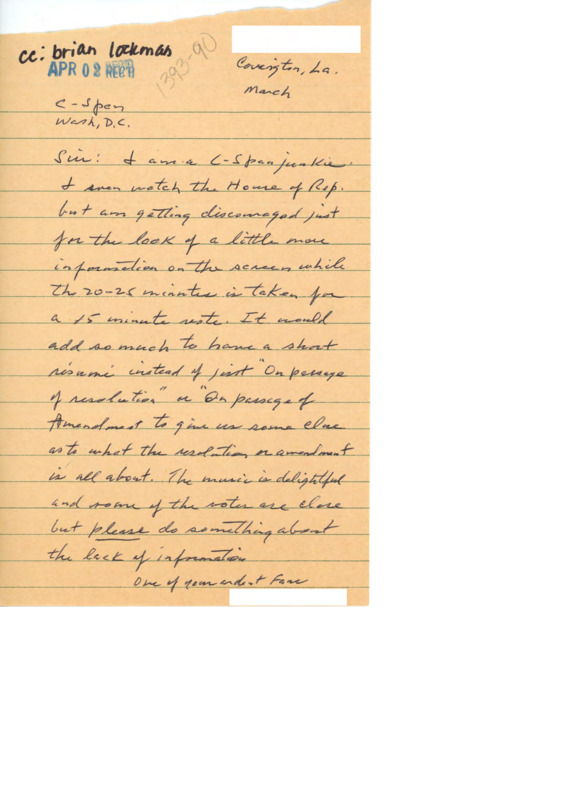 cc: brian lockman
APR 02 REC'D
1393-90
Covington, La.
March
C-Span
Wash, D.C.
Sir: I am a C-Span junkie.
I even watch the House of Rep.
but am getting discouraged just
for the lack of a little more
information on the screen while
the 20-25 minutes is taken for
a 15 minute vote. It would
add so much to have a short
résumé instead of just "On passage
of resolution" or "On passage of
Amendment to give us some clue
as to what the resolution or amendment
is all about. The music is delightful
and some of the votes are close
but please do something about
the lack of information
One of your ardent Fans